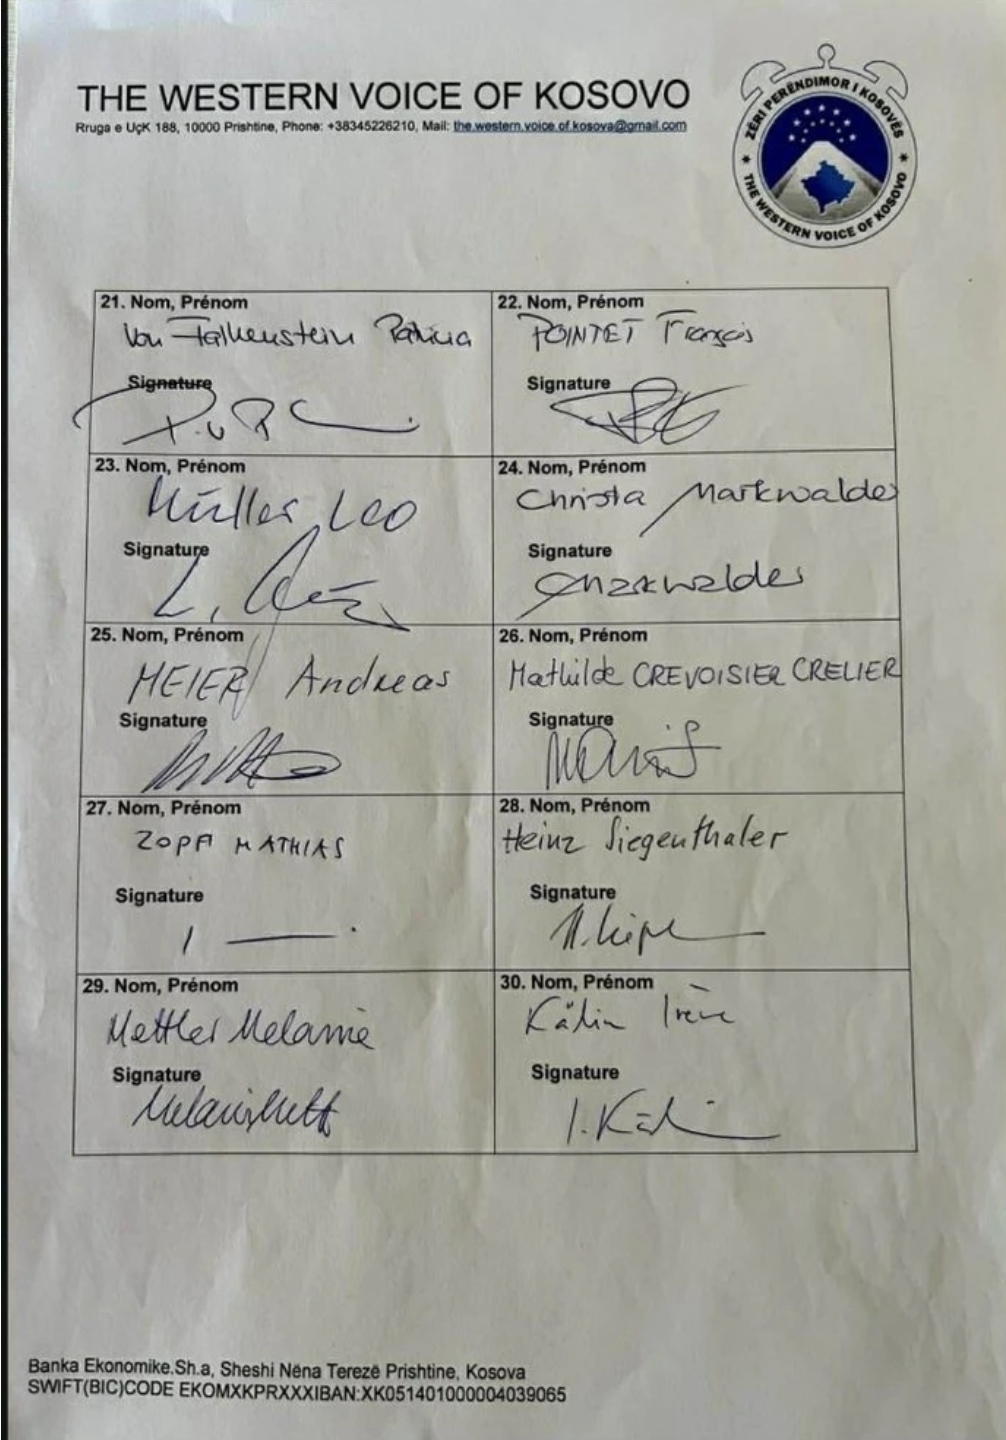 THE WESTERN VOICE OF KOSOVO
Rruga e UçK 188, 10000 Prishtine, Phone: +38345226210, Mail: the.western.voice.of.kosova@gmail.com
ZËRI PERËNDIMOR I KOSOVËS
THE WESTERN VOICE OF KOSOVO
21. Nom, Prénom
Von Falkenstein Patricia
Signature
22. Nom, Prénom
POINTET François
Signature
23. Nom, Prénom
Müller Leo
Signature
24. Nom, Prénom
Christa Markwalder
Signature
CMarkwalder
25. Nom, Prénom
MEIER Andreas
Signature
26. Nom, Prénom
Mathilde CREVOISIER CRELIER
Signature
27. Nom, Prénom
ZOPFI MATHIAS
Signature
28. Nom, Prénom
Heinz Siegenthaler
Signature
29. Nom, Prénom
Mettler Melanie
Signature
30. Nom, Prénom
Kälin Irène
Signature
I. Käli
Banka Ekonomike.Sh.a, Sheshi Nëna Terezë Prishtine, Kosova
SWIFT(BIC)CODE EKOMXKPRXXXIBAN:XK051401000004039065